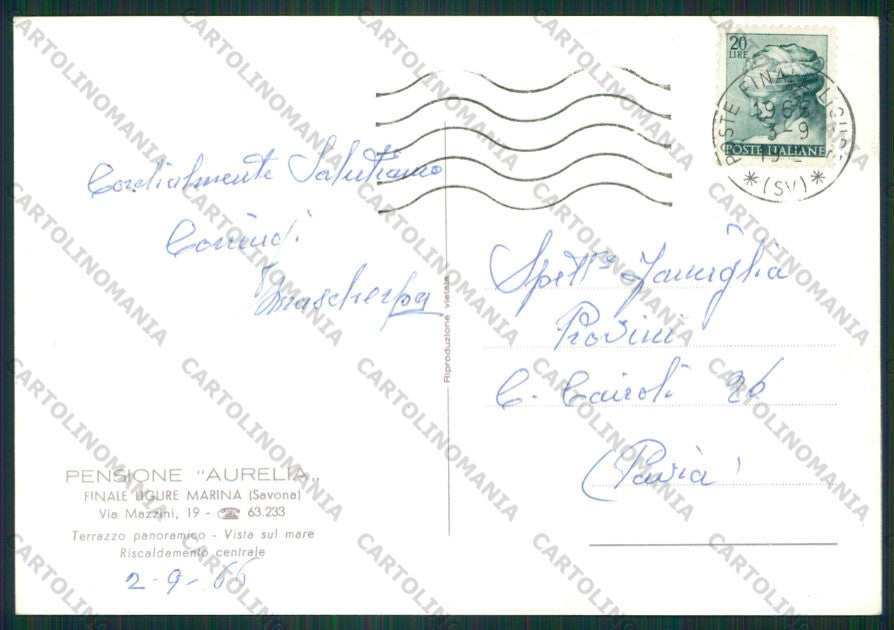 Cordialmente Salutiamo
Mascherpa
PENSIONE "AURELIA„
FINALE LIGURE MARINA (Savona)
Via Mazzini, 19 - ☎ 63.233
Terrazzo panoramico - Vista sul mare
Riscaldamento centrale
2-9-66
Riproduzione vietata
20
LIRE
POSTE ITALIANE
POSTE FINALE LIGURE
1966
3-9
*(SV)*
Spett. Famiglia
Provini
C. Cairoli 26
(Pavia)
CARTOLINOMANIA